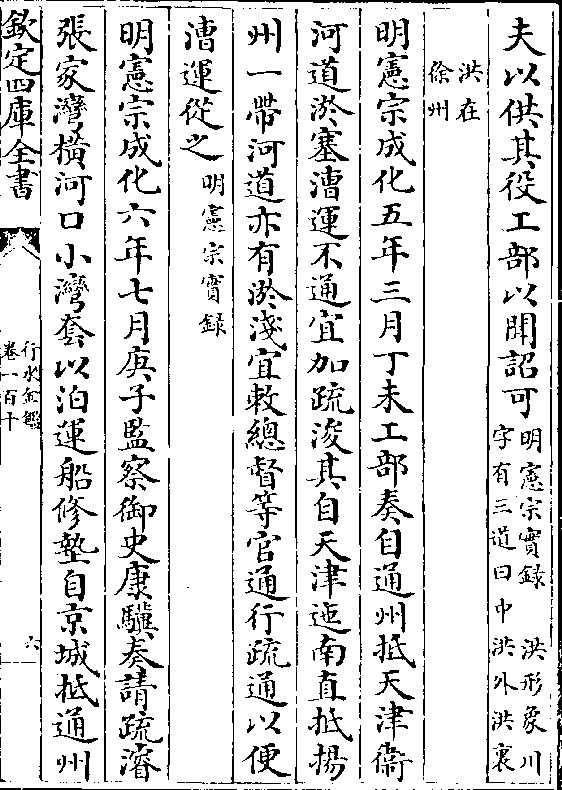 夫以供其役工部以聞詔可明憲宗實録　洪形象川
字有三道曰中洪外洪裏
洪在
徐州
明憲宗成化五年三月丁未工部奏自通州抵天津衞
河道淤塞漕運不通宜加疏浚其自天津迤南直抵揚
州一帶河道亦有淤淺宜敕總督等官通行疏通以便
漕運從之明憲宗實録
明憲宗成化六年七月庚子監察御史康驥奏請疏濬
張家灣橫河口小灣套以泊運船修墊自京城抵通州
欽定四庫全書
行水金鑑
卷一百十
六